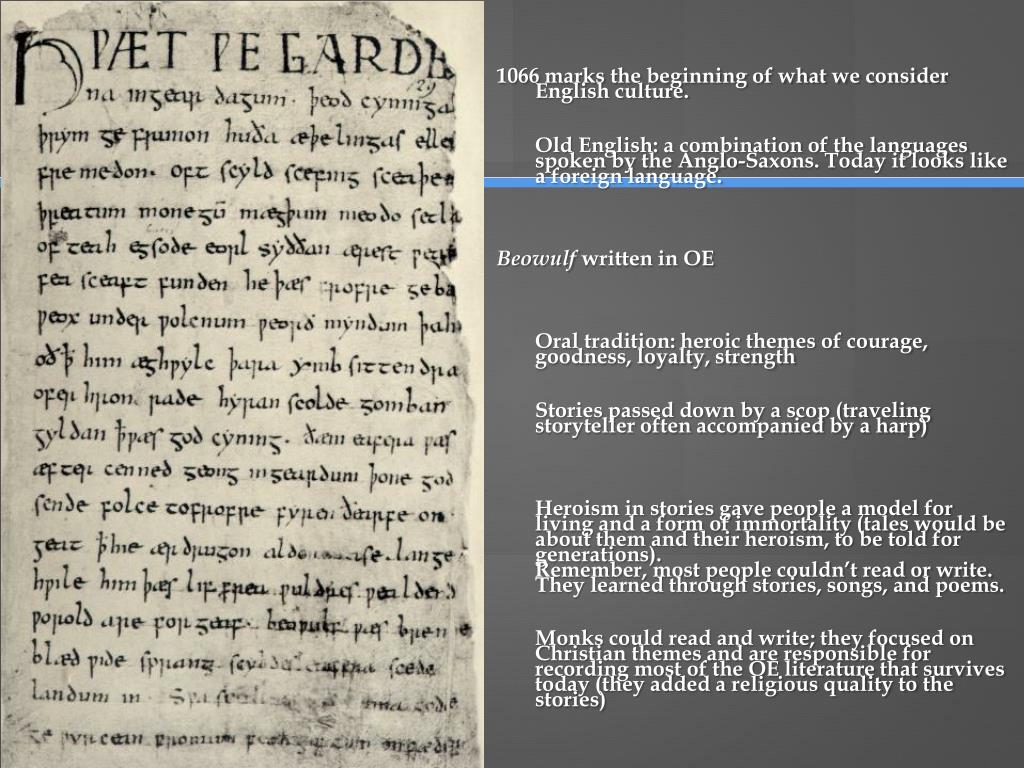 HǷÆT ǷE GARDE
na in gear dagum. þeod cyninga
þrym ge frunon huða æþelingas elle
fre medon. oft scyld scefing sceaþe
þreatum monegū mægþum meodo setla
of teah egsode eorl syððan ærest
fea sceaft funden he þæs frofre geba
ƿeox under ƿolcnum ƿeorð myndum þah
oð ꝥ him æghƿylc þara ymb sittendra
ofer hron rade hyran scolde gomban
gyldan ꝥ ƿæs god cyning. ðæm eafera ƿæs
æfter cenned geong in geardum þone god
sende folce tofrofre fyren ðearfe on
geat ꝥ hie ær drugon lange
hƿile him þæs lif frea ƿuldres
ƿorold are for geaf. beoƿulf ƿæs
blæd ƿide sprang eafera scede
landum in
ge ƿyrcean fromum
1066 marks the beginning of what we consider
English culture.
Old English: a combination of the languages
spoken by the Anglo-Saxons. Today it looks like
a foreign language.
Beowulf written in OE
Oral tradition: heroic themes of courage,
goodness, loyalty, strength
Stories passed down by a scop (traveling
storyteller often accompanied by a harp)
Heroism in stories gave people a model for
living and a form of immortality (tales would be
about them and their heroism, to be told for
generations).
Remember, most people couldn’t read or write.
They learned through stories, songs, and poems.
Monks could read and write; they focused on
Christian themes and are responsible for
recording most of the OE literature that survives
today (they added a religious quality to the
stories)